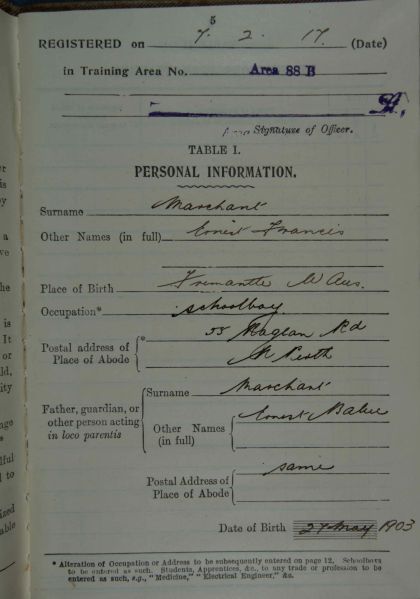 5
REGISTERED on 7. 2. 17. (Date)
in Training Area No. Area 88 B
Area Signature of Officer.
TABLE I.
PERSONAL INFORMATION.
Surname Marchant
Other Names (in full) Ernest Francis
Place of Birth Fremantle W Aus.
Occupation* Schoolboy
Postal address of Place of Abode * 55 Raglan Rd
N Perth
Father, guardian, or other person acting in loco parentis
Surname Marchant
Other Names (in full) Ernest
Postal Address of Place of Abode same
Date of Birth 27 May 1903
* Alteration of Occupation or Address to be subsequently entered on page 12. Schoolboys
to be entered as such. Students, Apprentices, &c. to any trade or profession to be
entered as such, e.g., "Medicine," "Electrical Engineer," &c.